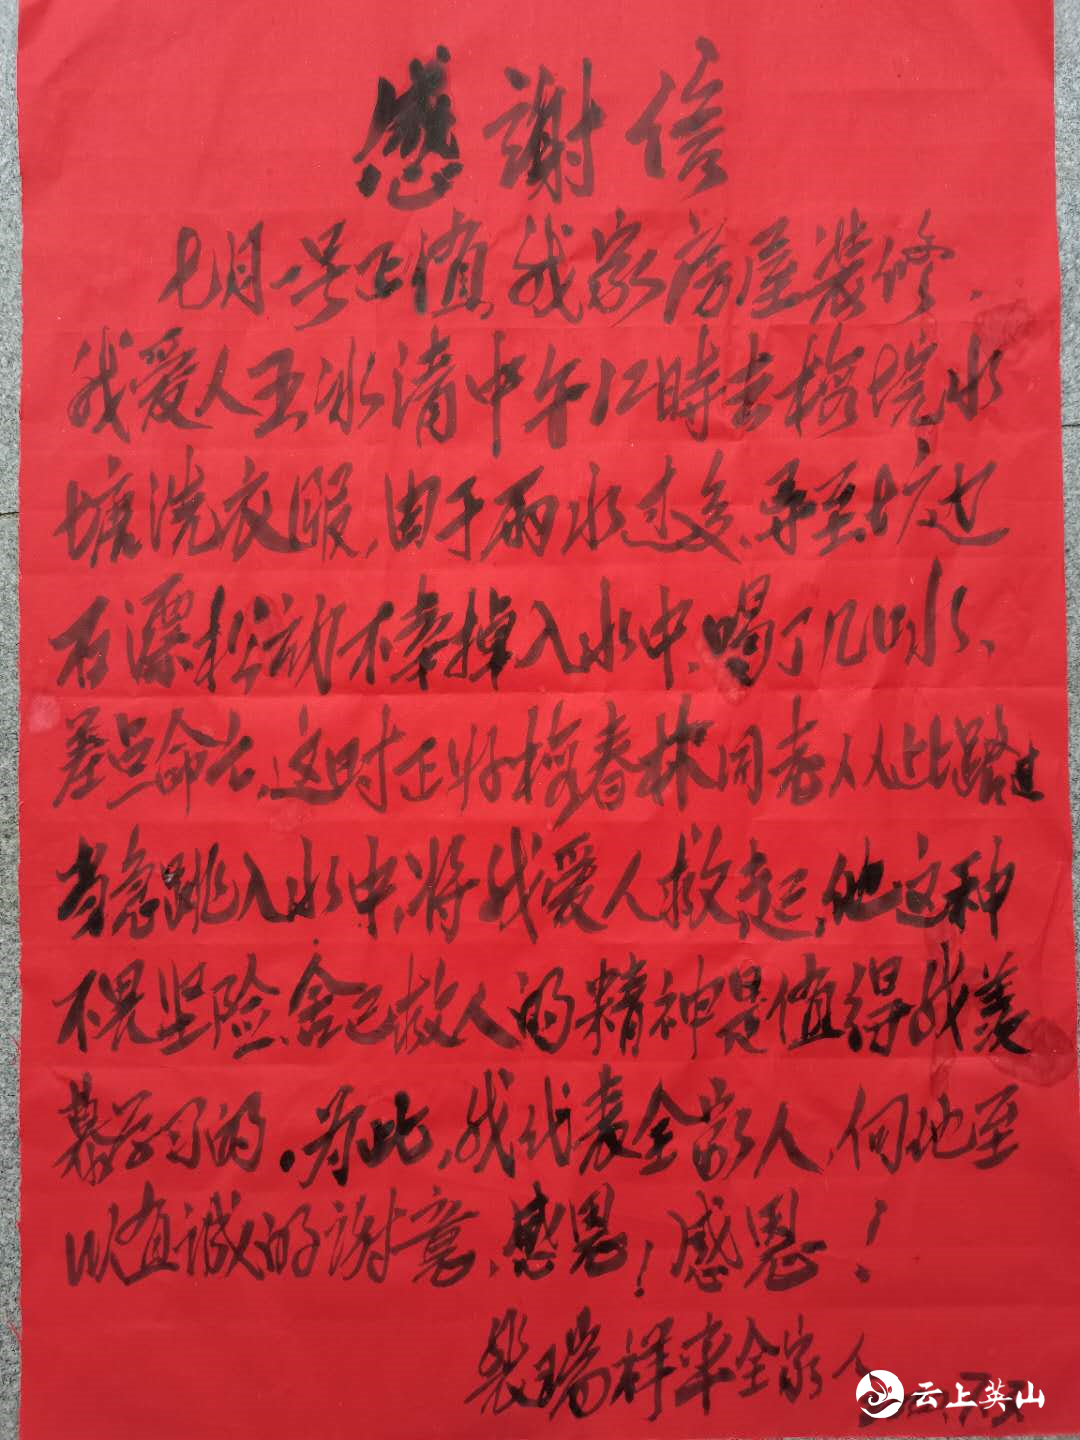 感謝信
七月一号正值我家房屋装修.
我爱人王冰清中午12時去梅垸水
塘洗衣服,由于雨水过多,导至塘边
石漂松动不幸掉入水中,喝了几口水、
差点命去,这时正好梅春林同志人从此路过
着急跳入水中,将我爱人救起,他这种
不畏坚险,舍己救人的精神是值得我羡
慕学习的.为此,我代表全家人,向他至
以真诚的谢意,感恩!感恩!
裴瑞祥率全家人
云上英山